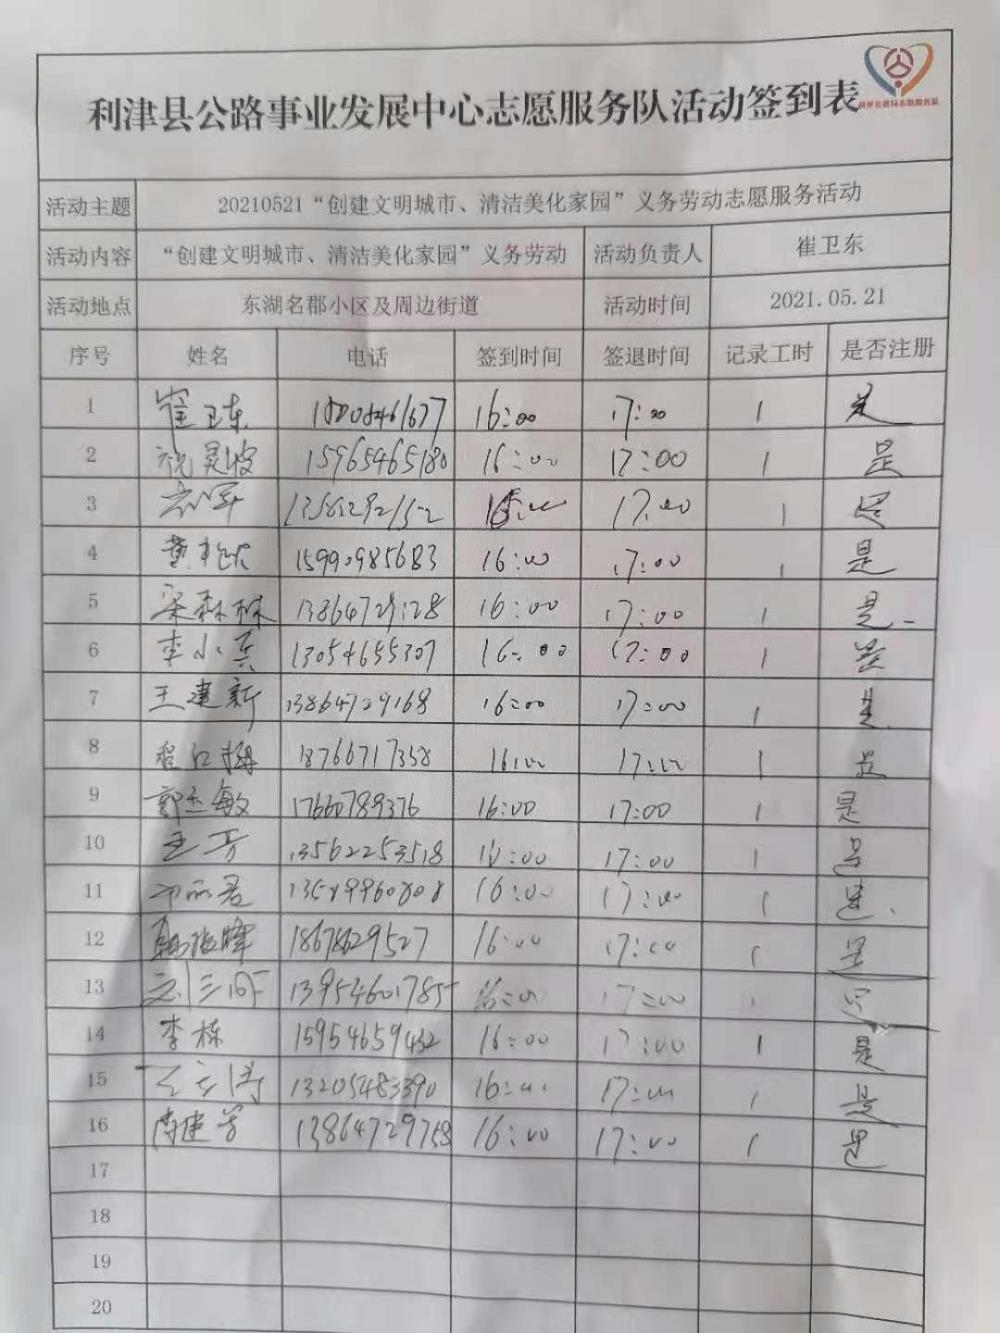 利津县公路事业发展中心志愿服务队活动签到表
活动主题 20210521“创建文明城市、清洁美化家园”义务劳动志愿服务活动
活动内容 “创建文明城市、清洁美化家园”义务劳动 活动负责人 崔卫东
活动地点 东湖名郡小区及周边街道 活动时间 2021.05.21
序号 姓名 电话 签到时间 签退时间 记录工时 是否注册
1 崔卫东 16:00 17:00 1 是
2 15965465180 16:00 17:00 1 是
3 17:00 1 是
4 15990985683 16:00 17:00 1 是
5 梁森林 16:00 17:00 1 是
6 李小兵 13054655307 16:00 17:00 1 是
7 王建新 13864729168 16:00 17:00 1 是
8 程红梅 18766717358 16:00 17:00 1 是
9 郭玉敏 17660789376 16:00 17:00 1 是
10 王芳 13562253518 16:00 17:00 1 是
11 邓丽君 16:00 17:00 1 是
12 18678629527 16:00 17:00 1 是
13 13954601785 16:00 17:00 1 是
14 李栋 15954659432 16:00 17:00 1 是
15 13205483390 16:00 17:00 1 是
16 13864729758 16:00 17:00 1 是
17
18
19
20